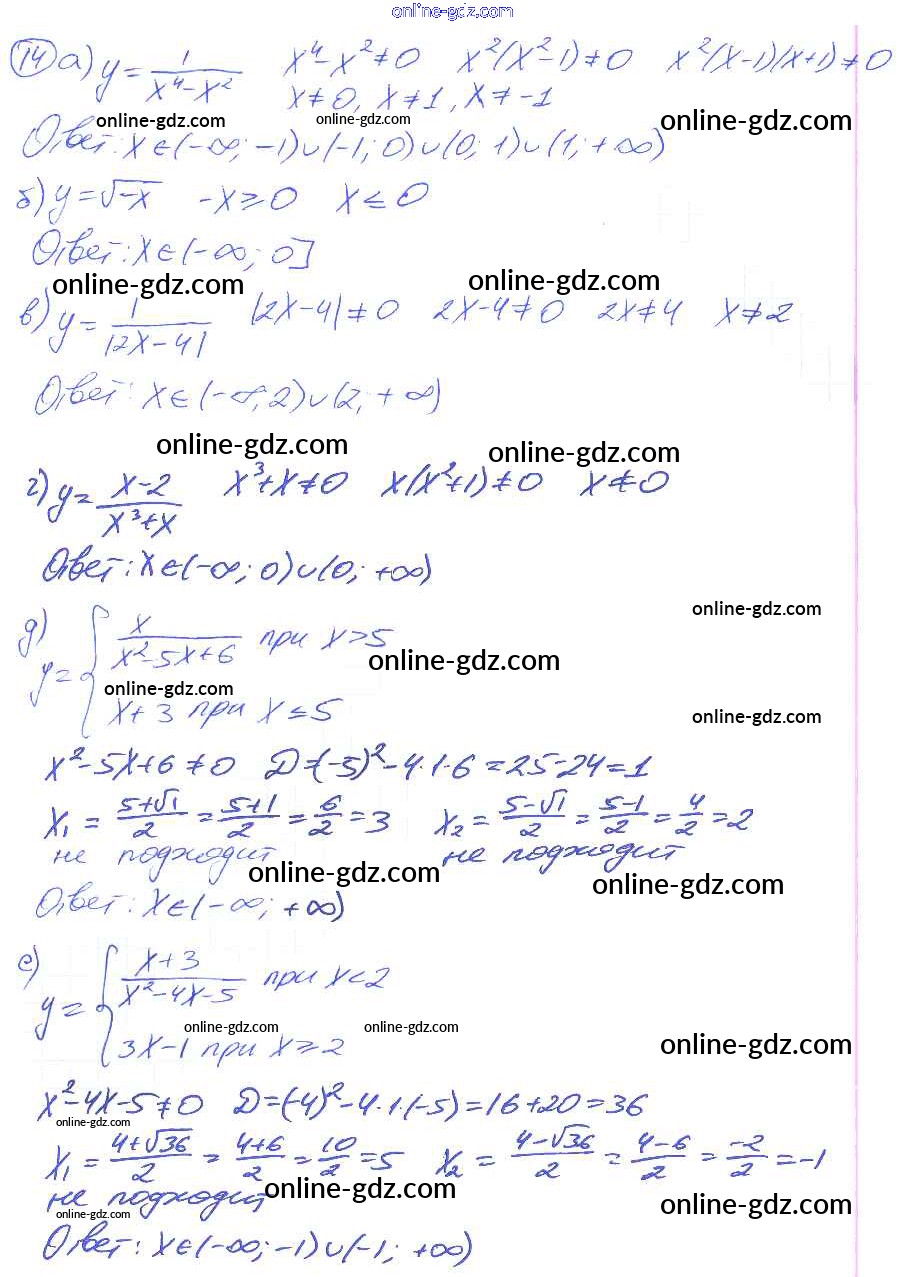 online-gdz.com
14 а) y = 1/(x⁴-x²) x⁴-x²≠0 x²(x²-1)≠0 x²(x-1)(x+1)≠0
x≠0, x≠1, x≠-1
online-gdz.com online-gdz.com online-gdz.com
Ответ: x∈(-∞; -1)∪(-1; 0)∪(0; 1)∪(1; +∞)
б) y=√-x -x≥0 x≤0
Ответ: x∈(-∞; 0]
online-gdz.com online-gdz.com
в) y = 1/|2x-4| |2x-4|≠0 2x-4≠0 2x≠4 x≠2
Ответ: x∈(-∞; 2)∪(2; +∞)
online-gdz.com online-gdz.com
г) y = (x-2)/(x³+x) x³+x≠0 x(x²+1)≠0 x≠0
Ответ: x∈(-∞; 0)∪(0; +∞)
online-gdz.com
д) y = { x/(x²-5x+6) при x>5
online-gdz.com
online-gdz.com
x+3 при x≤5
online-gdz.com
x²-5x+6≠0 D=(-5)²-4·1·6=25-24=1
x₁ = (5+√1)/2 = (5+1)/2 = 6/2 = 3 x₂ = (5-√1)/2 = (5-1)/2 = 4/2 = 2
не подходит не подходит
online-gdz.com online-gdz.com
Ответ: x∈(-∞; +∞)
е) y = { (x+3)/(x²-4x-5) при x<2
online-gdz.com online-gdz.com online-gdz.com
3x-1 при x≥2
x²-4x-5≠0 D=(-4)²-4·1·(-5)=16+20=36
online-gdz.com
x₁ = (4+√36)/2 = (4+6)/2 = 10/2 = 5 x₂ = (4-√36)/2 = (4-6)/2 = -2/2 = -1
не подходит
online-gdz.com online-gdz.com online-gdz.com
Ответ: x∈(-∞; -1)∪(-1; +∞)